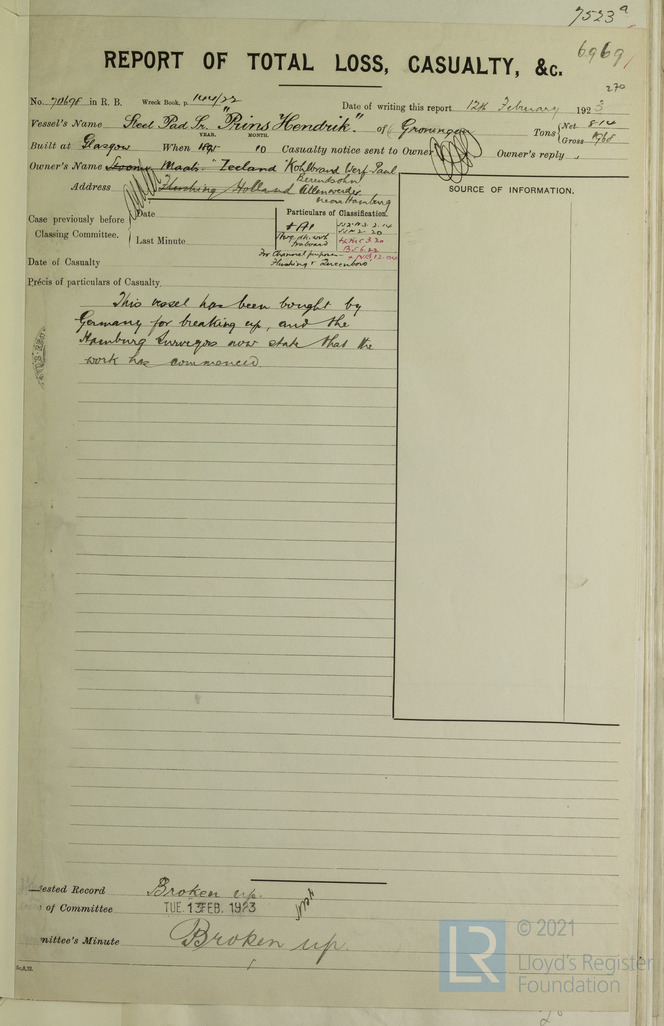 7523 a
6969
REPORT OF TOTAL LOSS, CASUALTY, &c.
270
No. 70698 in R. B. Wreck Book, p. 144/22 Date of writing this report 12th February 1923
Vessel's Name Steel Pad Sr. "Prins Hendrik." of Groningen Tons Net 814
YEAR. MONTH. Gross 1968
Built at Glasgow When 10 Casualty notice sent to Owner Owner's reply
Owner's Name Stoomv Maats. "Zeeland" Kohlbrand Werf Paul
Berendsohn
Address Flushing Holland Allenwerder
near Hamburg
SOURCE OF INFORMATION.
Case previously before Classing Committee. Date
Last Minute
Particulars of Classification.
+A1
For Channel purposes
Flushing & Queenboro
Date of Casualty
Précis of particulars of Casualty.
This vessel has been bought by
Germany for breaking up, and the
Hamburg Surveyors now state that the
work has commenced.
ested Record Broken up.
of Committee TUE. 13 FEB. 1923
mittee's Minute Broken up.
© 2021
LR
Lloyd's Register
Foundation